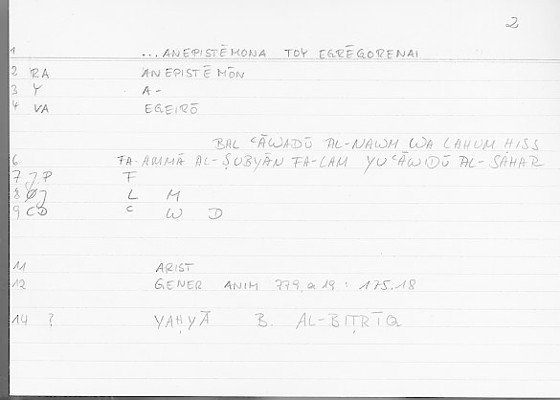 2
1 ...ANEPISTĒMONA TOY EGRĒGORENAI
2 RA ANEPISTĒMŌN
3 Y A-
4 VA EGEIRŌ
BAL ʿĀWADŪ AL-NAWM WA LAHUM ḤISS
6 FA-AMMĀ AL-ṢUBYĀN FA-LAM YUʿĀWIDŪ AL-SAHAR
7 J.P F
8 ØJ L M
9 CD ʿ W D
11 ARIST
12 GENER ANIM 779, a 19 : 175.18
14 ? YAḤYĀ B. AL-BIṬRĪQ